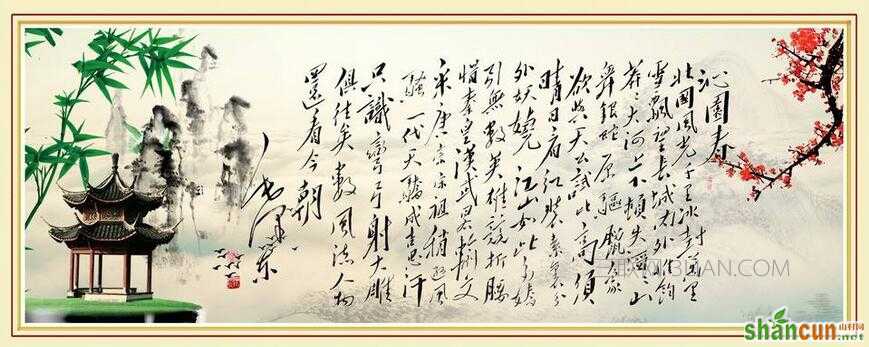 沁園春
北國風光千里冰封萬里
雪飄望長城内外惟餘
莽々大河上下頓失滔々山
舞銀蛇原驅臘象
欲與天公試比高須
晴日看紅裝素裹分
外妖嬈 江山如此多嬌
引無數英雄競折腰
惜秦皇漢武略輸文
采唐宗宋祖稍遜風
騷一代天驕成吉思汗
只識彎弓射大雕
俱往矣數風流人物
還看今朝
毛澤東
shancun
山村网
.net